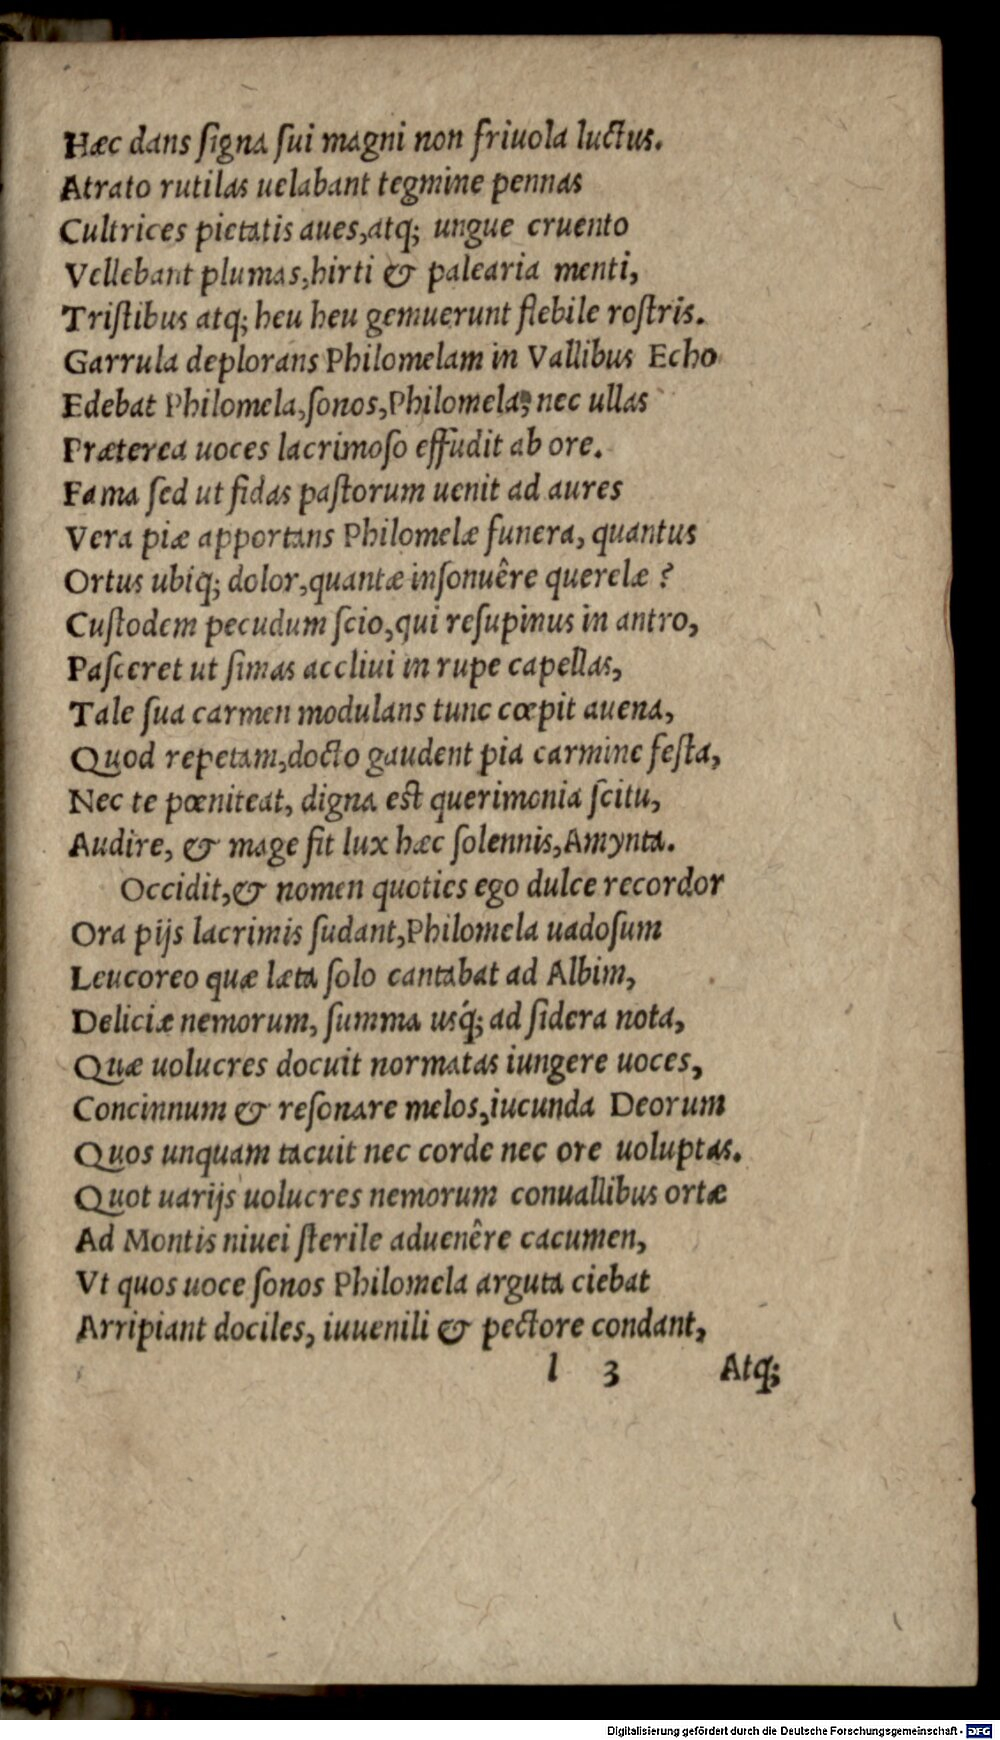 Hæc dans ſigna ſui magni non friuola luctus.
Atrato rutilas uelabant tegmine pennas
Cultrices pietatis aues, atq; ungue cruento
Vellebant plumas, hirti & palearia menti,
Triſtibus atq; heu heu gemuerunt flebile roſtris.
Garrula deplorans Philomelam in Vallibus Echo
Edebat Philomela, ſonos, Philomela, nec ullas
Præterea uoces lacrimoſo effudit ab ore.
Fama ſed ut fidas paſtorum uenit ad aures
Vera piæ apportans Philomelæ funera, quantus
Ortus ubiq; dolor, quantæ inſonuêre querelæ ?
Cuſtodem pecudum ſcio, qui reſupinus in antro,
Paſceret ut ſimas accliui in rupe capellas,
Tale ſua carmen modulans tunc cœpit auena,
Quod repetam, docto gaudent pia carmine feſta,
Nec te pœniteat, digna est querimonia ſcitu,
Audire, & mage fit lux hæc ſolennis, Amynta.
Occidit, & nomen quoties ego dulce recordor
Ora pijs lacrimis ſudant, Philomela uadoſum
Leucoreo quæ læta ſolo cantabat ad Albim,
Deliciæ nemorum, ſumma uſq́; ad ſidera nota,
Quæ uolucres docuit normatas iungere uoces,
Concinnum & reſonare melos, iucunda Deorum
Quos unquam tacuit nec corde nec ore uoluptas.
Quot uarijs uolucres nemorum conuallibus ortæ
Ad Montis niuei ſterile aduenêre cacumen,
Vt quos uoce ſonos Philomela arguta ciebat
Arripiant dociles, iuuenili & pectore condant,
l 3 Atq;
Digitalisierung gefördert durch die Deutsche Forschungsgemeinschaft - DFG